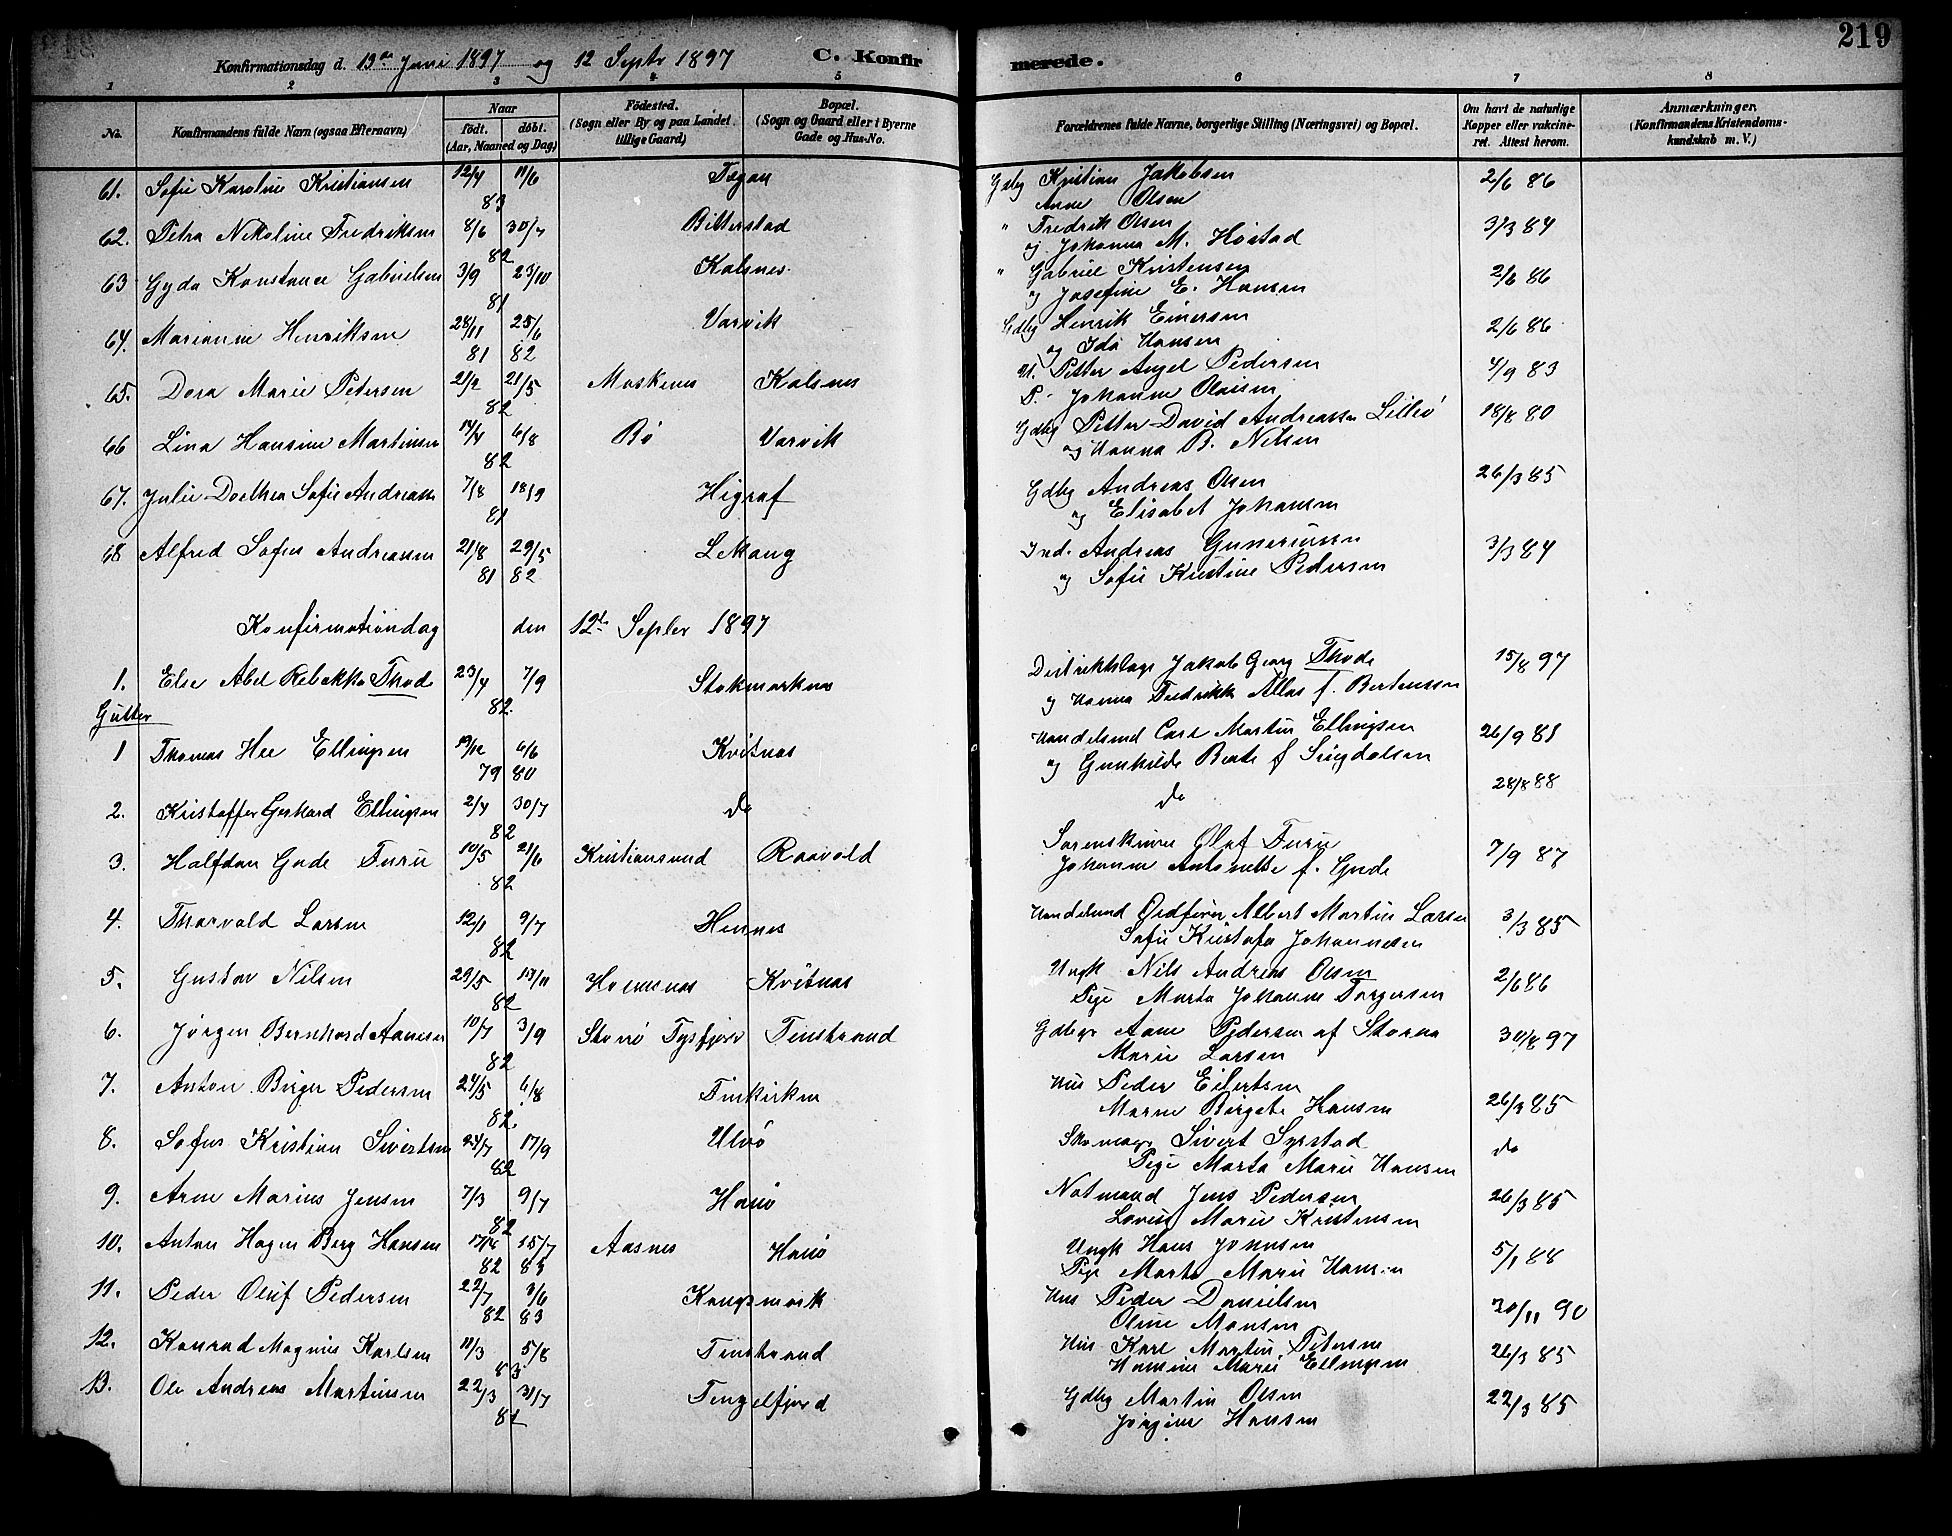 219
Konfirmationsdag d. 13de Juni 1897 og 12 Septr 1897 C. Konfirmerede.
1 2 3 4 5 6 7 8
No. Konfirmandens fulde Navn (ogsaa Efternavn) Naar født. døbt. (Aar, Maaned og Dag) Fødested. (Sogn eller By og paa Landet tillige Gaard) Bopæl. (Sogn og Gaard eller i Byerne Gade og Hus-No. Forældrenes fulde Navne, borgerlige Stilling (Næringsvei) og Bopæl. Om havt de naturlige Kopper eller vakcineret. Attest herom. Anmærkninger. (Konfirmandens Kristendomskundskab m. V.)
61. Sofie Karoline Kristiansen 12/4 11/6 Gdbg Kristian Jakobsen 2/6 86
83 Anne Olsen
62. Petra Nikoline Fredriksen 8/6 30/7 Bitterstad " Fredrik Olsen 3/3 84
82 og Johanna M. Hostad
63 Gyda Konstance Gabrielsen 3/9 23/10 Kalsnes " Gabriel Kristensen 2/6 86
81 og Josefine E. Hansen
64. Marianne Henriksen 28/11 25/6 Varvik Gdbg Henrik Einersen 2/6 86
81 82 og Ida Hansen
65. Dora Marie Petersen 21/2 21/5 Moskenes Kalsnes U. Petter Angel Pedersen 4/9 83
82 P. Johanne Olaisen
66 Lina Hansine Martinsen 14/4 6/8 Bø Varvik Gdbg Petter David Andreassen Lillevo 18/8 80
82 og Hanna B. Nilsen
67. Julie Dorthea Sofie Andreass 7/8 18/9 Higraf Gdbg Andreas Olsen 26/3 85
81 og Elisabet Johansen
68 Alfred Sofus Andreassen 21/8 29/5 Lekang Ind. Andreas Guneriussen 3/3 84
81 82 og Sofie Kristine Pedersen
Konfirmationdag den 12te Septbr 1897
1. Else Abel Rebekka Thode 23/4 7/9 Stokmarknes Distriktslæge Jakob Georg Thode 15/8 97
82. og Hanna Fredrikke Allas f. Berntsen
Gutter
1 Thomas Hee Ellingsen 19/12 6/6 Kvitnes Handelsmd Carl Martin Ellingsen 26/9 81
79 80 og Gunhilde Berte f Sigdalsen
2. Kristoffer Gerhard Ellingsen 2/4 30/7 do do 28/8 88
82
3. Halfdan Gude Furu 10/5 21/6 Kristiansund Raavold Sorenskriver Olaf Furu 7/9 87
82 Johanne Antonette f. Gude
4. Thorvald Larsen 12/1 9/7 Hennes Handelsmd Ordfører Albert Martin Larsen 3/3 85
82 Sofie Kristofa Johannesen
5. Gustav Nilsen 29/5 19/11 Kvitnes Ungk Nils Andreas Olsen 2/6 86
82 Pige Marta Johanne Torgersen
6. Jørgen Bernhard Aanesen 10/7 3/9 Storø Tysfjord Tinstrand Gdbgr Aane Pedersen af Storøn 30/8 97
82 Marie Larsen
7. Anton Birger Pedersen 24/5 6/8 Hus Peder Eilertsen 26/3 85
82. Maren Birgete Hansen
8. Sofus Kristian Sivertsen 24/7 17/9 Ulvø Skomagr Sivert Syrstad do
82 Pige Marta Marie Hansen
9. Arne Marius Jensen 7/3 9/7 Hanø Notmand Jens Pedersen 26/3 85
82 Lovise Marie Kristensen
10. Anton Hagen Berg Hansen 17/12 15/7 Aasnes Hanø Ungk Hans Johnsen 5/1 88
82 83 Pige Marta Marie Hansen
11. Peder Oluf Pedersen 22/7 3/6 Kongsmark Hus Peder Danielsen 30/11 90
82 83 Oline Monsen
12. Konrad Magnus Karlsen 11/3 5/8 Tinstrand Hus Karl Martin Petersen 26/3 85
83 Hansine Marie Ellingsen
13. Ole Andreas Martinsen 22/3 31/7 Tengelfjord Gdbg Martin Olsen 22/3 85
81 Jørgine Hansen